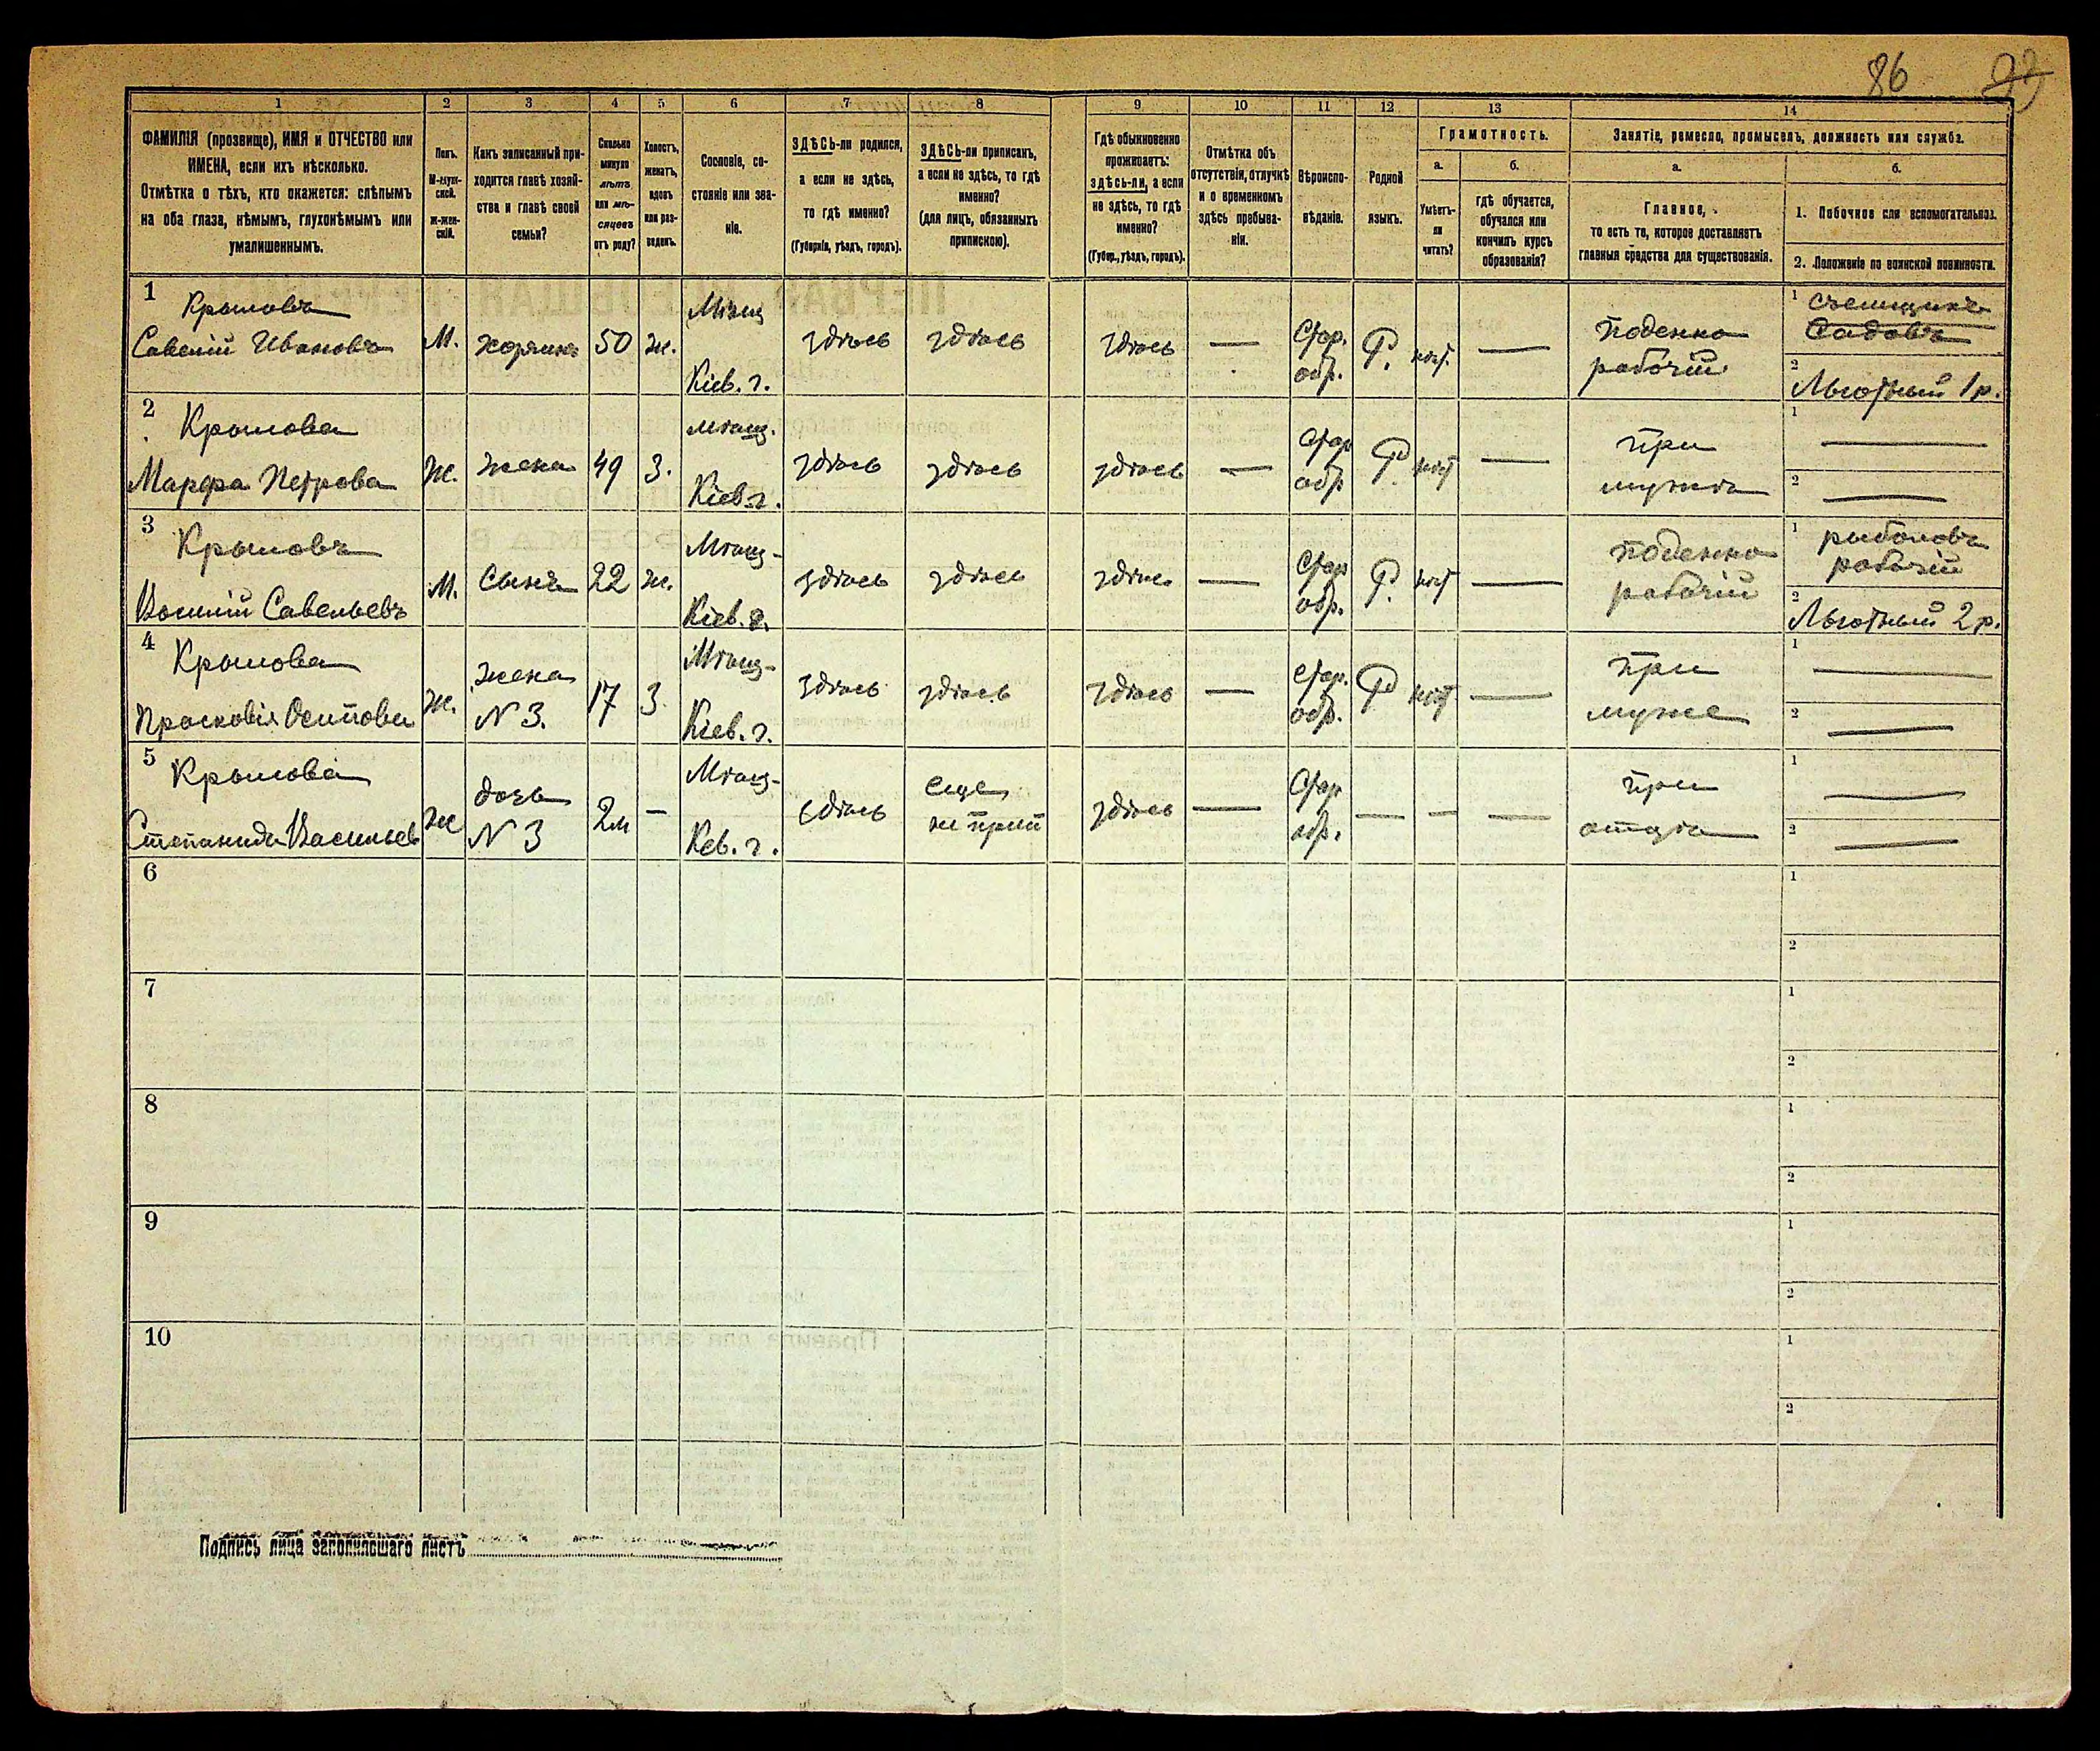 86
1
2
3
4
5
6
7
8
9
10
11
12
13
14
ФАМИЛІЯ (прозвище), ИМЯ и ОТЧЕСТВО или
ИМЕНА, если ихъ нѣсколько.
Отмѣтка о тѣхъ, кто окажется: слѣпымъ
на оба глаза, нѣмымъ, глухонѣмымъ или
умалишеннымъ.
Полъ.
М-муж-
ской.
ж-жен-
скій.
Какъ записанный при-
ходится главѣ хозяй-
ства и главѣ своей
семьи?
Сколько
минуло
лѣтъ
или мѣ-
сяцевъ
отъ роду?
Холостъ,
женатъ,
вдовъ
или раз-
веденъ.
Сословіе, со-
стояніе или зва-
ніе.
ЗДѢСЬ-ли родился,
а если не здѣсь,
то гдѣ именно?
(Губернія, уѣздъ, городъ).
ЗДѢСЬ-ли приписанъ,
а если не здѣсь, то гдѣ
именно?
(для лицъ, обязанныхъ
припискою).
Гдѣ обыкновенно
проживаетъ:
здѣсь-ли, а если
не здѣсь, то гдѣ
именно?
(Губер., уѣздъ, городъ).
Отмѣтка объ
отсутствіи, отлучкѣ
и о временномъ
здѣсь пребыва-
ніи.
Вѣроиспо-
вѣданіе.
Родной
языкъ.
Грамотность.
а.
Умѣетъ-
ли
читать?
б.
гдѣ обучается,
обучался или
кончилъ курсъ
образованія?
Занятіе, ремесло, промыселъ, должность или служба.
а.
Главное,
то есть то, которое доставляетъ
главныя средства для существованія.
б.
1. Побочное или вспомогательное.
2. Положеніе по воинской повинности.
1
Крыловъ
Савелій Ивановъ
М.
хозяинъ
50
ж.
Мѣщ
Кіев. г.
здѣсь
здѣсь
здѣсь
—
Стар.
обр.
Р.
нѣт.
—
поденно
рабочій
1
съемщикъ
Садовъ
2
Льготный 1 р.
2
Крылова
Марфа Петрова
Ж.
жена
49
З.
мѣщ.
Кіев. г.
здѣсь
здѣсь
здѣсь
—
Стар
обр
Р.
нѣт
—
при
мужѣ
1
—
2
—
3
Крыловъ
Василій Савельевъ
М.
Сынъ
22
ж.
Мѣщ-
Кіев. г.
здѣсь
здѣсь
здѣсь
—
Стар
обр.
Р.
нѣт
—
поденно
рабочій
1
рыболовъ
рабочій
2
Льготный 2 р.
4
Крылова
Прасковія Осипова
ж.
жена
N 3.
17
З.
Мѣщ-
Кіев. г.
здѣсь
здѣсь
здѣсь
—
Стар.
обр.
Р
нѣт
—
при
муже
1
—
2
—
5
Крылова
Степанида Васильев
ж
дочь
N 3
2м
—
Мѣщ-
Кев. г.
здѣсь
еще
не прип
здѣсь
—
Стар
обр.
—
—
—
при
отцѣ
1
—
2
—
6
1
2
7
1
2
8
1
2
9
1
2
10
1
2
Подпись лица заполнившаго листъ